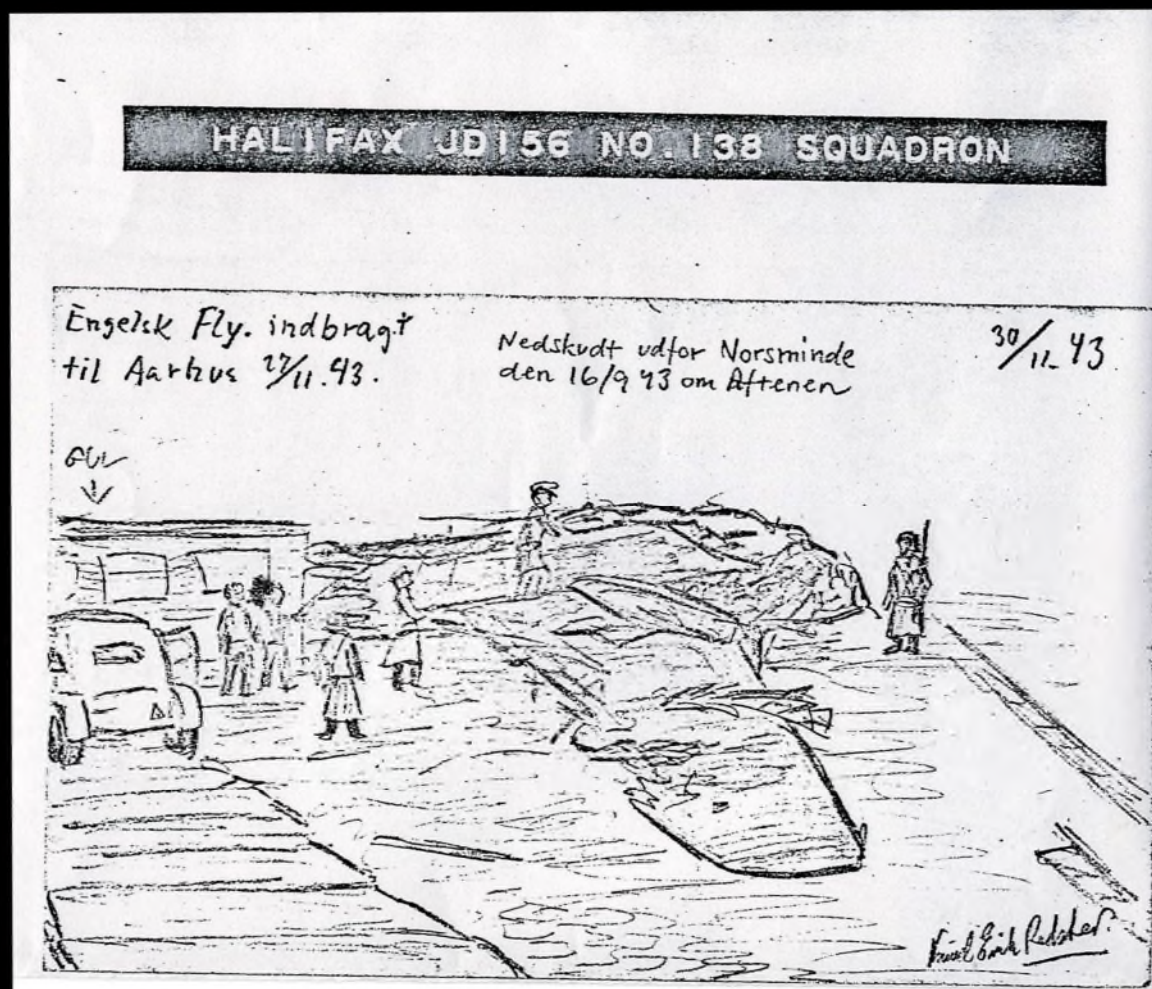 HALIFAX JD156 NO. 138 SQUADRON
Engelsk Fly. indbragt
til Aarhus 27/11.43.
Nedskudt udfor Norsminde
den 16/9 43 om Aftenen
30/11. 43
GUL
Erik